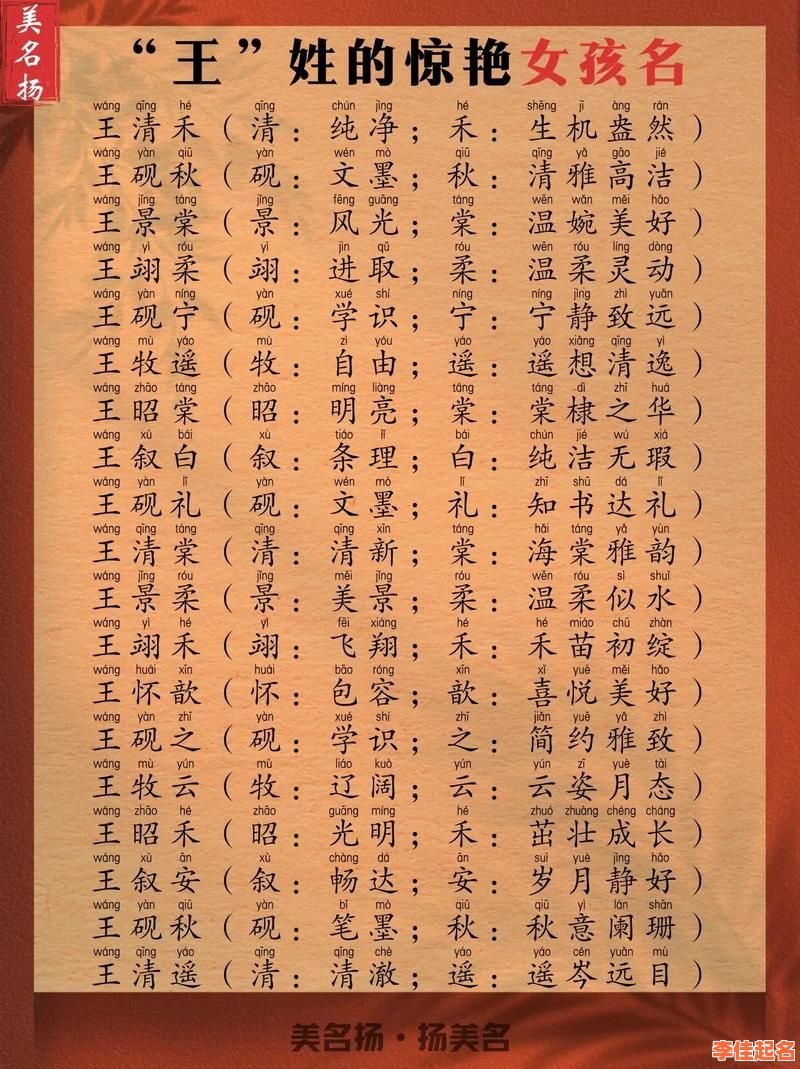 美名扬
“王”姓的惊艳女孩名
wáng qīng hé qīng chún jìng hé shēng jī àng rán
王清禾（清：纯净；禾：生机盎然）
wáng yàn qiū yàn wén mò qiū qīng yǎ gāo jié
王砚秋（砚：文墨；秋：清雅高洁）
wáng jǐng táng jǐng fēng guāng táng wēn wǎn měi hǎo
王景棠（景：风光；棠：温婉美好）
wáng yì róu yì jìn qǔ róu wēn róu líng dòng
王翊柔（翊：进取；柔：温柔灵动）
wáng yàn níng yàn xué shí níng níng jìng zhì yuǎn
王砚宁（砚：学识；宁：宁静致远）
wáng mù yáo mù zì yóu yáo yáo xiǎng qīng yì
王牧遥（牧：自由；遥：遥想清逸）
wáng zhāo táng zhāo míng liàng táng táng dì zhī huá
王昭棠（昭：明亮；棠：棠棣之华）
wáng xù bái xù tiáo lǐ bái chún jié wú xiá
王叙白（叙：条理；白：纯洁无瑕）
wáng yàn lǐ yàn wén mò lǐ zhī shū dá lǐ
王砚礼（砚：文墨；礼：知书达礼）
wáng qīng táng qīng qīng xīn táng hǎi táng yǎ yùn
王清棠（清：清新；棠：海棠雅韵）
wáng jǐng róu jǐng měi jǐng róu wēn róu sì shuǐ
王景柔（景：美景；柔：温柔似水）
wáng yì hé yì fēi xiáng hé hé miáo chū zhàn
王翊禾（翊：飞翔；禾：禾苗初绽）
wáng huái xīn huái bāo róng xīn xǐ yuè měi hǎo
王怀歆（怀：包容；歆：喜悦美好）
wáng yàn zhī yàn xué shí zhī jiǎn yuē yǎ zhì
王砚之（砚：学识；之：简约雅致）
wáng mù yún mù liáo kuò yún yún zī yuè tài
王牧云（牧：辽阔；云：云姿月态）
wáng zhāo hé zhāo guāng míng hé zhuó zhuàng chéng cháng
王昭禾（昭：光明；禾：茁壮成长）
wáng xù ān xù chàng dá ān suì yuè jìng hǎo
王叙安（叙：畅达；安：岁月静好）
wáng yàn qiū yàn bǐ mò qiū qiū yì lán shān
王砚秋（砚：笔墨；秋：秋意阑珊）
wáng qīng yáo qīng qīng chè yáo yáo cén yuǎn mù
王清遥（清：清澈；遥：遥岑远目）
美名扬·扬美名
李佳起名